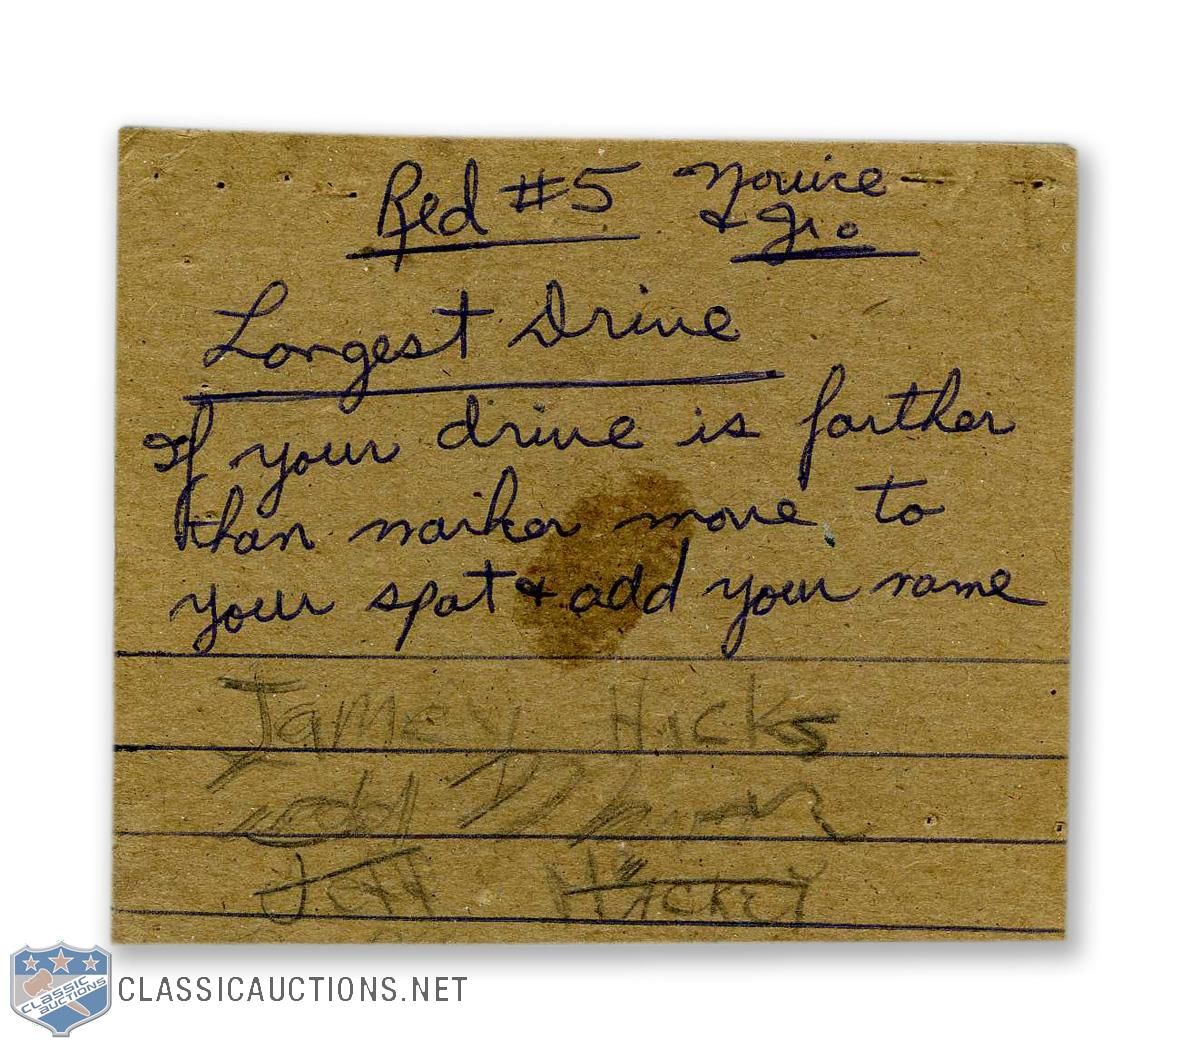 Red #5 Novice
& Jr.
Longest Drive
If your drive is farther
than marker move to
your spot & add your name
Jamey Hicks
Todd
Jeff Hackey
CLASSIC
AUCTIONS
CLASSICAUCTIONS.NET